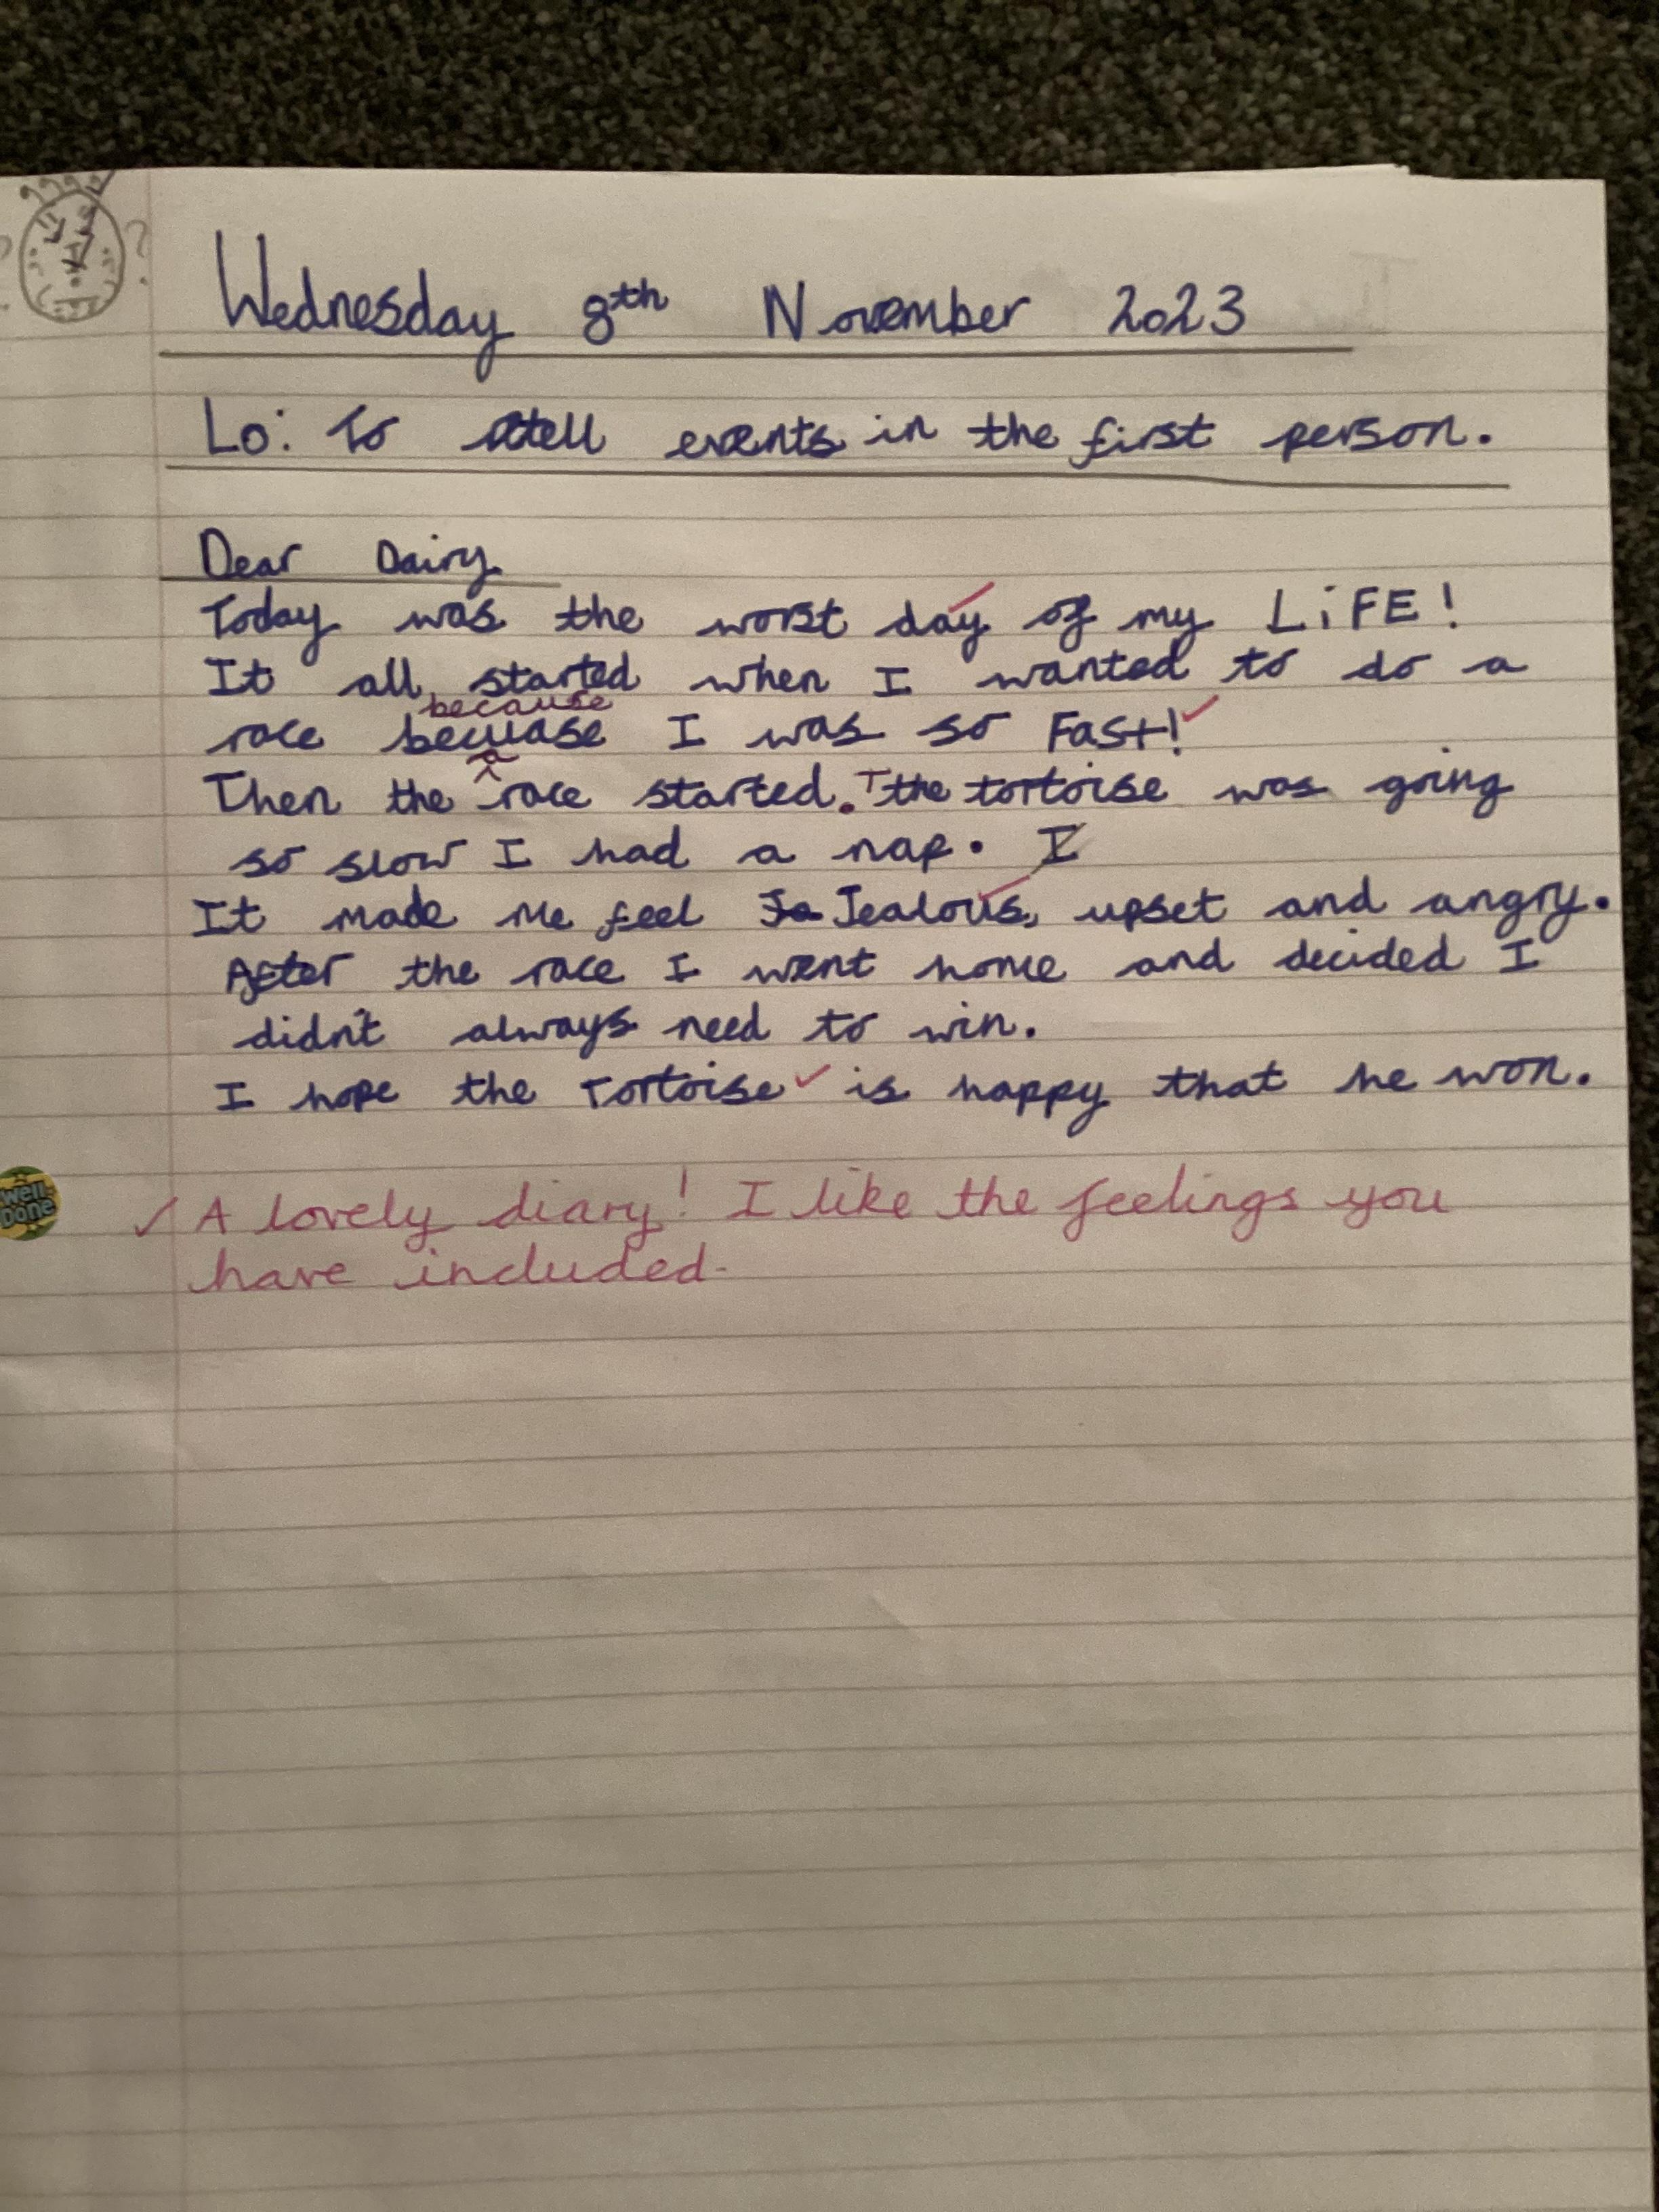 Wednesday 8th November 2023
Lo: To tell events in the first person.
Dear Dairy
Today was the worst day of my LiFE!
It all started when I wanted to do a
because
race becuase I was so FasT!
a
Then the race started. T the tortoise was going
so slow I had a nap. I
It made me feel Ja Jealous, upset and angry.
After the race I went home and decided I
didn't always need to win.
I hope the Tortoise is happy that he won.
Well Done
A lovely diary! I like the feelings you
have included.